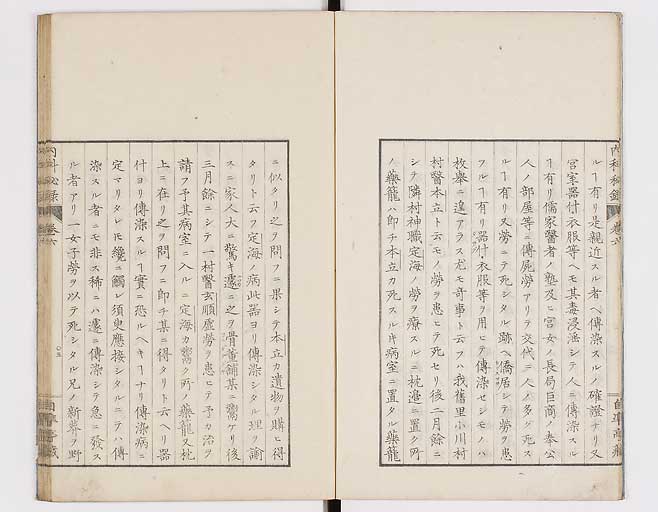 ルヿ有リ是親近スル者ヘ傳染スルノ確證ナリ又
宮室器付衣服等ヘモ其毒浸淫シテ人ニ傳染スル
ヿ有リ儒家醫者ノ塾及ヒ宮女ノ長局巨商ノ奉公
人ノ部屋等ニ傳屍勞アリテ交代ニ人ノ多ク死ス
ルヿ有リ又勞ニテ死シタル跡ヘ僑居シテ勞ヲ患
フルヿ有リ器付衣服等ヲ用ヒテ傳染セシモノハ
枚舉ニ遑アラス尤モ奇事ト云フハ我舊里小川村
村醫本立ト云モノ勞ヲ患ヒテ死セリ後二月餘ニ
シテ隣村神職定海ノ勞ヲ療スルニ枕邊ニ置ク所
ノ藥籠ハ即チ本立カ死スルキ病室ニ置タル藥籠
ニ似タリ之ヲ問フニ果シテ本立カ遺物ヲ購ヒ得
タリト云フ定海ノ病此器ヨリ傳染シタル理ヲ諭
スニ家人大ニ驚キ遽ニ之ヲ骨董舖某ニ鬻ケリ後
三月餘ニシテ一村醫玄順虛勞ヲ患ヒテ予カ治ヲ
請フ予其病室ニ入ルニ定海カ鬻ク所ノ藥籠又枕
上ニ在リ之ヲ問フニ即チ某ニ得タリト云ヘリ器
付ヨリ傳染スルヿ實ニ恐ルヘキヿナリ傳染病ニ
定マリタレ𪜈纔ニ觸レ須臾應接シタルニテハ傳
染スル者ニモ非ス稀ニハ遽ニ傳染シテ急ニ發ス
ル者アリ一女子勞ヲ以テ死シタル兄ノ新葬ヲ野
內科秘錄
卷六